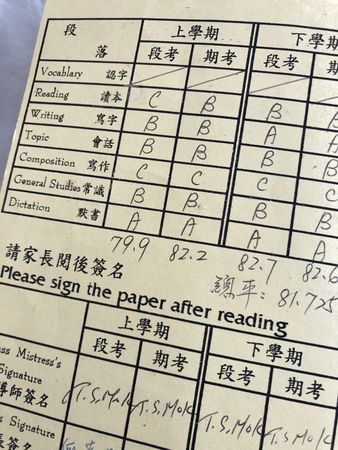 段 上學期 下學期
落 段考 期考 段考 期
Vocablary 認字
Reading 讀本 C B B B
Writing 寫字 B B A A
Topic 會話 B B B B
Composition 寫作 C C C B
General Studies 常識 B B B B
Dictation 默書 A A A A
79.9 82.2 82.7 82.6
請家長閱後簽名 總平：81.725
Please sign the paper after reading
上學期 下學期
段考 期考 段考 期考
ss Mistress's
Signature
導師簽名 T.S.Mok T.S.Mok T.S.Mok T.S.Mok
s Signature
長簽名